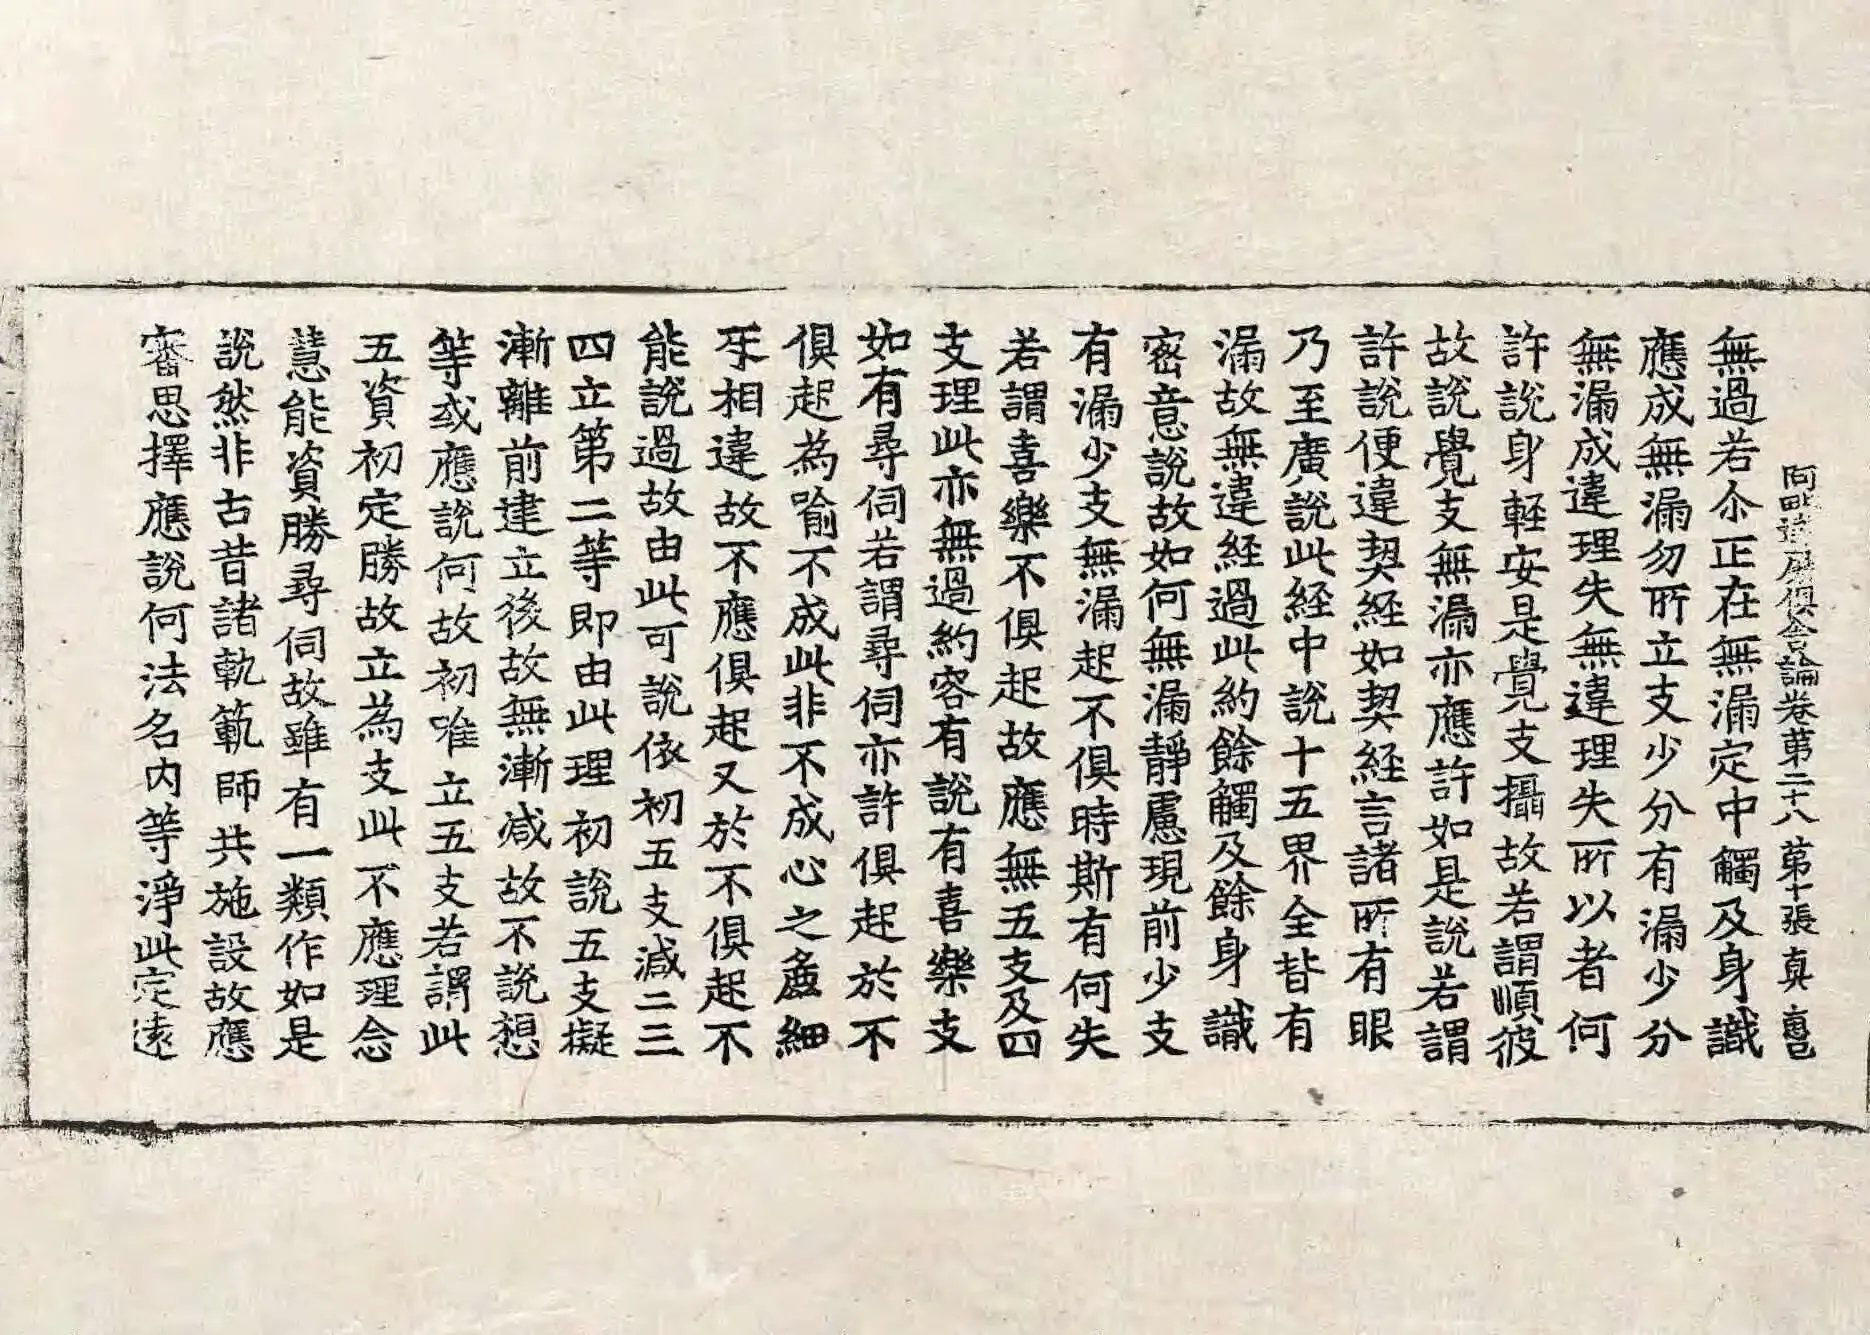 阿毗達磨俱舍論卷第二十八 第十張 真
無過若尒正在無漏定中觸及身識
應成無漏勿所立支少分有漏少分
無漏成違理失無違理失所以者何
許說身輕安是覺支攝故若謂順彼
故說覺支無漏亦應許如是說若謂
許說便違契經如契經言諸所有眼
乃至廣說此經中說十五界全皆有
漏故無違經過此約餘觸及餘身識
密意說故如何無漏靜慮現前少支
有漏少支無漏起不俱時斯有何失
若謂喜樂不俱起故應無五支及四
支理此亦無過約容有說有喜樂支
如有尋伺若謂尋伺亦許俱起於不
俱起為喻不成此非不成心之麁細
互相違故不應俱起又於不俱起不
能說過故由此可說依初五支減二三
四立第二等即由此理初說五支擬
漸離前建立後故無漸減故不說想
等或應說何故初唯立五支若謂此
五資初定勝故立為支此不應理念
慧能資勝尋伺故雖有一類作如是
說然非古昔諸軌範師共施設故應
審思擇應說何法名內等淨此定遠